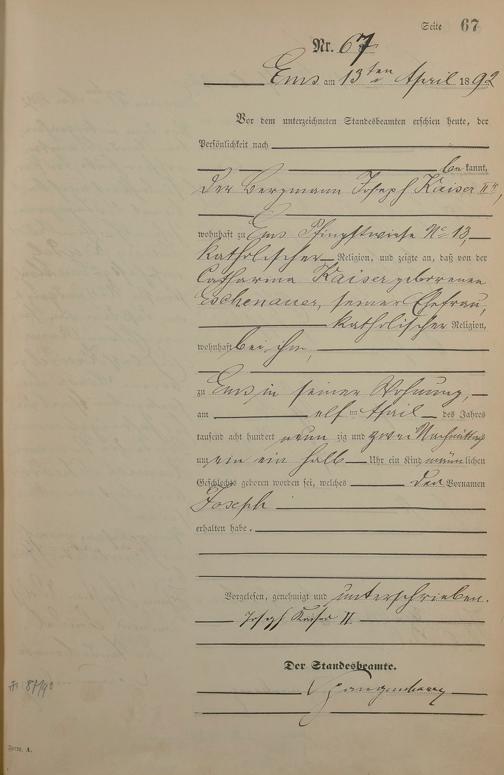 Seite 67
Nr. 67
Ems am 13ten April 1892
Vor dem unterzeichneten Standesbeamten erschien heute, der
Persönlichkeit nach
bekannt,
der Bergmann Joseph Kaiser IIr,
wohnhaft zu Ems Pfingstwiese No 13,
katholischer Religion, und zeigte an, daß von der
Catharina Kaiser geborenen
Eschenauer, seiner Ehefrau,
katholischer Religion,
wohnhaft bei ihm,
zu Ems in seiner Wohnung,
am elf ten April des Jahres
tausend acht hundert neun zig und zwei Nachmittags
um ein ein halb Uhr ein Kind männlichen
Geschlechts geboren worden sei, welches den Vornamen
Joseph
erhalten habe.
Vorgelesen, genehmigt und unterschrieben.
Joseph Kaiser II.
Der Standesbeamte.
Form. A.